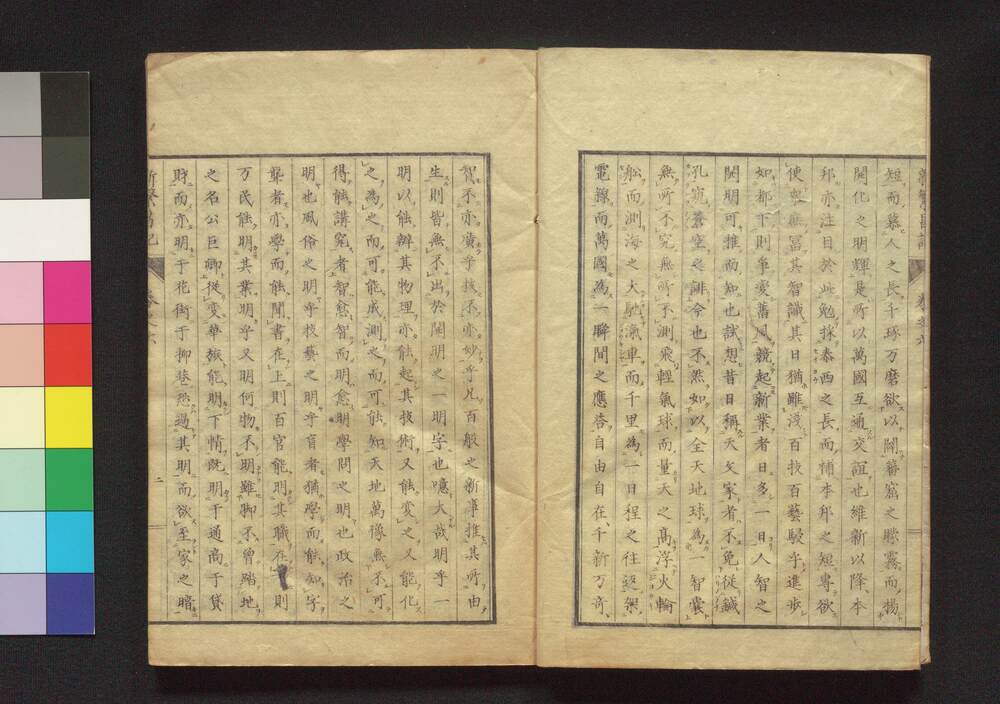 短而慕人之長千琢万磨欲以闢蕃窟之朦霧而揚
開化之明輝是所以萬國互通交誼也維新以降本
邦亦注目於此勉採泰西之長而補本邦之短專欲
使皇無冨其智識其日猶雖淺百技百藝駸乎進步
如都下則爭変舊風競起新業者日多一日人智之
開明可推而知也試想昔日稱天文家者不免從鍼
孔窺蒼空之誹今也不然如以全天地球爲一智囊
無所不究無所不測飛輕氣球而量天之高浮火輪
舩而測海之大馳滊車而千里爲一日程之往返架
電線而萬國爲一瞬間之應答自由自在千新万奇
智不亦廣乎技不亦妙乎凡百般之新事推其所由
生則皆無不出於開明之一明字也噫大哉明乎一
明以能辨其物理亦能起其技術又能変之又能化
之爲之而可能成測之而可能知天地萬象無不可
得能講究者智愈智而明愈明學問之明也政治之
明也風俗之明乎技藝之明乎盲者猶學而能知字
聾者亦學而能聞書在上則百官能明其職在 則
万民能明其業明乎又明何物不明雖脚不曾踏地
之名公巨卿從変華族能明下情既明于通商于貸
財而亦明于花街于柳巷恐過其明而欲至家之暗
新繁昌記 二